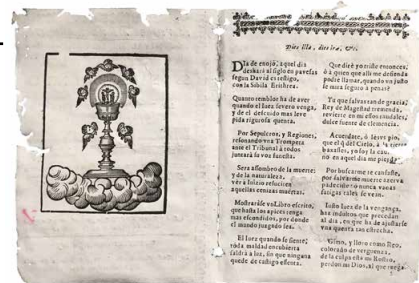 Dies illa, dies iræ, &c.
Dia de enojo, aquel dia
deshará al siglo en pavesas
segun David es testigo,
con la Sibila Erithrea.
Quanto temblor ha de aver
quando el Juez severo venga,
y de el descuido mas leve
pida rigurosa quenta.
Por Sepulcros, y Regiones,
resonando una Trompeta
ante el Tribunal à todos
juntará su voz funesta.
Será assombro de la muerte
y de la naturaleza,
ver à Juizio resucitar
aquellas cenizas muertas.
Mostraráse un Libro escrito,
que hasta los apices tenga
mas escondidos, por donde
el mundo juzgado sea.
El Juez quando se siente,
toda maldad encubierta
saldrá à luz, sin que ninguna
quede de castigo essenta.
Que diré yo triste entonces,
ò à quien que assi me defienda
podré llamar, quando un justo
se mira seguro à penas?
Tu que salvaras de gracia,
Rey de Magestad tremenda,
dulce fuente de clemencia.
Acuerdate, ò Jesus pio,
que el q del Cielo, à la tierra
baxasses, yo soy la causa
no en aquel dia me pierda.
Por buscarme te cansaste,
por salvarme muerte acerva
padeciste no vanas
fatigas tales se vean.
Justo Juez de la venganza,
haz indultos que precedan
al dia, en que ha de ajustarse
una quenta tan estrecha.
Gimo, y lloro como Reo,
colorado de verguenza,
de la culpa està mi Rostro,
perdon mi Dios, al que ruega